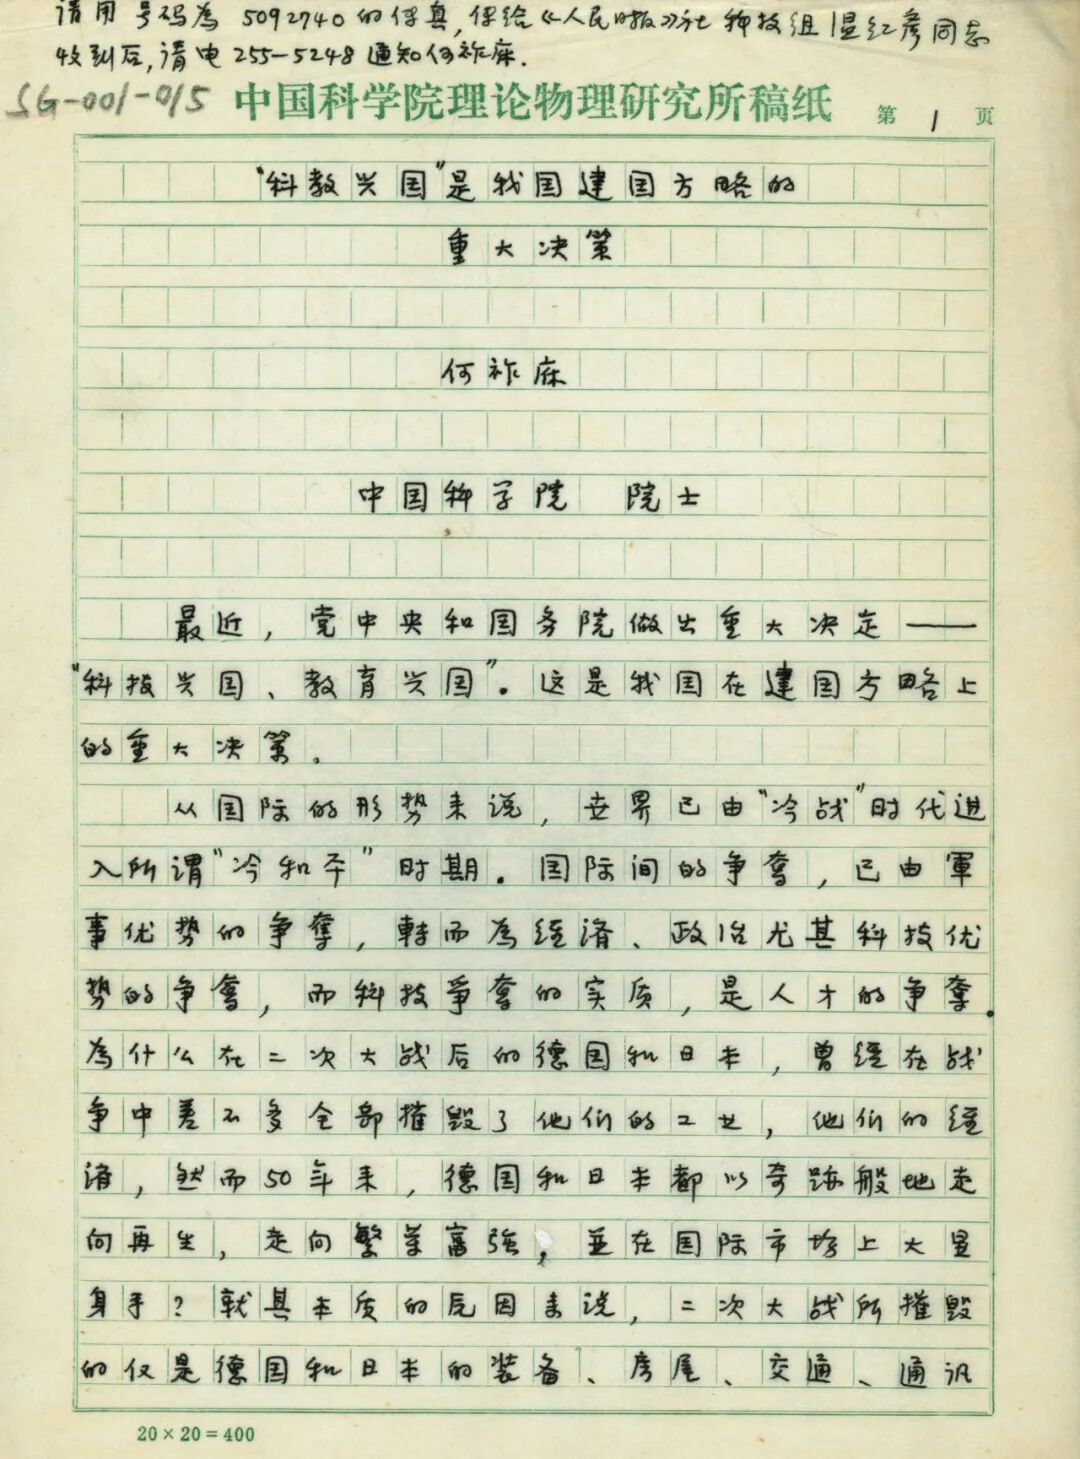 请用号码為 5092740 的传真，传给《人民日报》社科技组温红彦同志
收到后，请电 255-5248 通知何祚庥.
SG-001-015 中国科学院理论物理研究所稿纸 第 1 页
“科教兴国”是我国建国方略的
重大决策
何祚庥
中国科学院 院士
最近，党中央和国务院做出重大决定——
“科技兴国、教育兴国”。这是我国在建国方略上
的重大决策。
从国际的形势来说，世界已由“冷战”时代进
入所谓“冷和平”时期。国际间的争奪，已由軍
事优势的争奪，轉而為经济、政治尤其科技优
势的争奪，而科技争奪的实质，是人才的争奪。
為什么在二次大战后的德国和日本，曾经在战
争中差不多全部摧毁了他们的工业，他们的经
济，然而50年来，德国和日本都以奇跡般地走
向再生，走向繁荣富強，並在国际市场上大显
身手？就其本质的原因来说，二次大战所摧毁
的仅是德国和日本的装备、房屋、交通、通讯
20×20=400